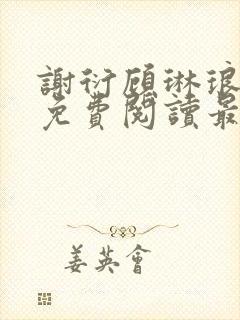 謝衍顧琳琅
免費閱讀最
姜英會